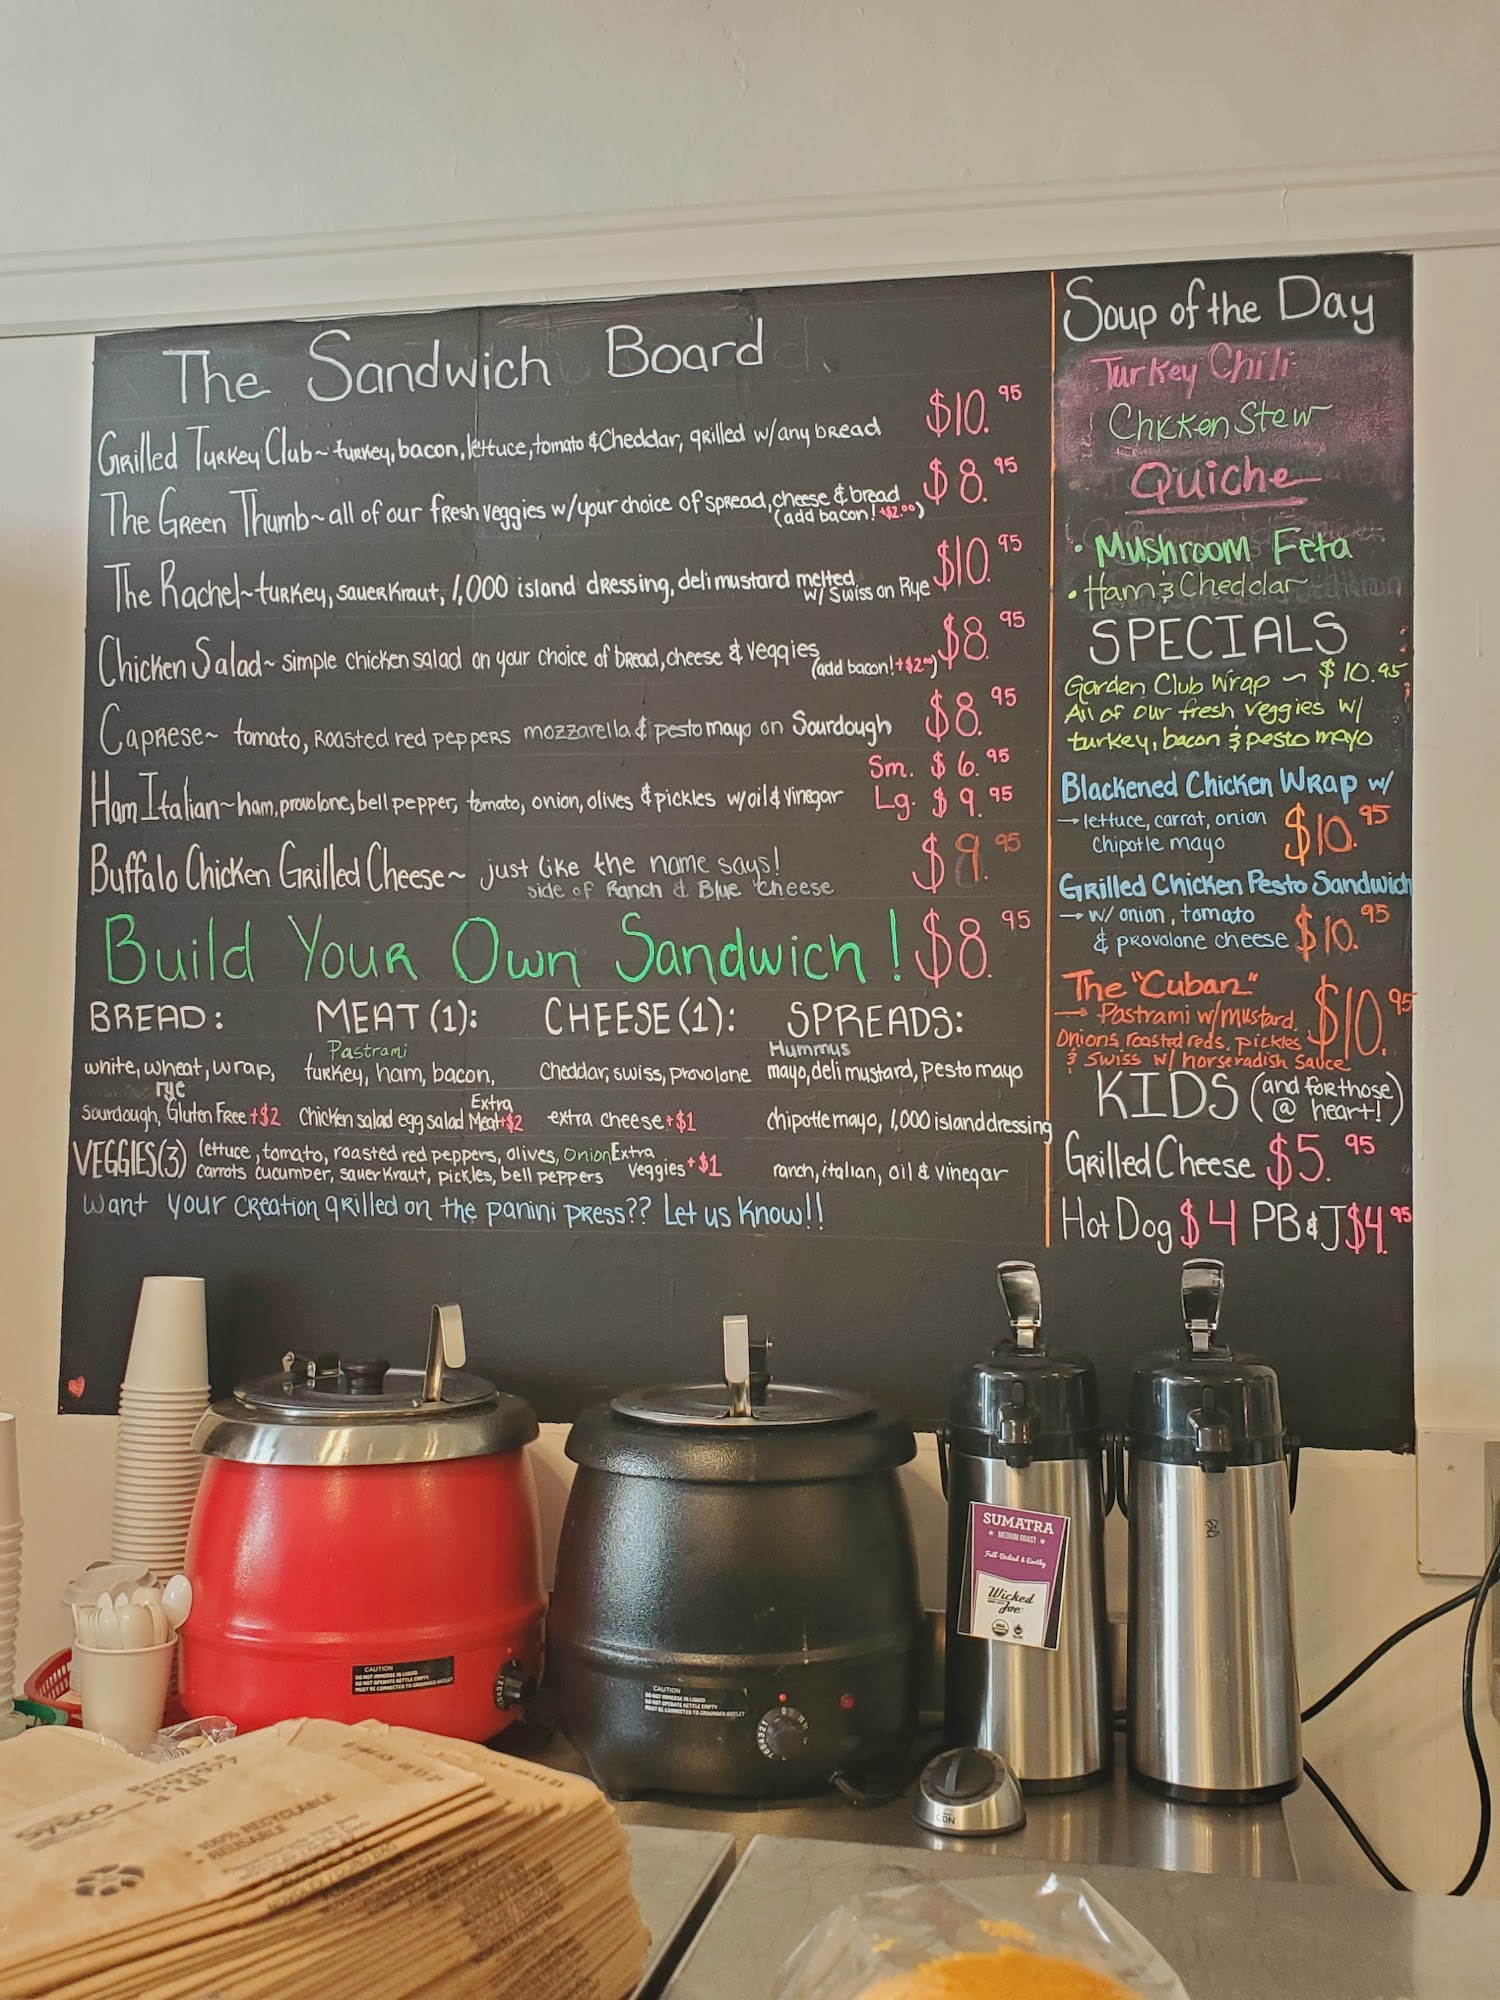 The Sandwich Board
Grilled Turkey Club~ turkey, bacon, lettuce, tomato & Cheddar, grilled w/any bread $10.95
The Green Thumb~ all of our fresh veggies w/your choice of spread, cheese & bread $8.95
(add bacon! +$2.00)
The Rachel~ turkey, sauerkraut, 1,000 island dressing, deli mustard melted $10.95
w/ Swiss on Rye
Chicken Salad~ simple chicken salad on your choice of bread, cheese & veggies $8.95
(add bacon! +$2.00)
Caprese~ tomato, Roasted red peppers mozzarella & pesto mayo on Sourdough $8.95
Sm. $6.95
Ham Italian~ ham, provolone, bell pepper, tomato, onion, olives & pickles w/oil & vinegar Lg. $9.95
Buffalo Chicken Grilled Cheese~ just like the name says! $9.95
side of Ranch & Blue cheese
Build Your Own Sandwich! $8.95
BREAD: MEAT (1): CHEESE (1): SPREADS:
Pastrami Hummus
white, wheat, wrap, turkey, ham, bacon, Cheddar, swiss, provolone mayo, deli mustard, pesto mayo
rye Extra
Sourdough, Gluten Free +$2 Chicken salad egg salad Meat +$2 extra cheese +$1 chipotle mayo, 1,000 island dressing
VEGGIES (3) lettuce, tomato, roasted red peppers, olives, onion Extra
carrots cucumber, sauerkraut, pickles, bell peppers Veggies +$1 ranch, italian, oil & vinegar
Want your creation grilled on the panini press?? Let us know!!
Soup of the Day
Turkey Chili
Chicken Stew
Quiche
• Mushroom Feta
• Ham & Cheddar
SPECIALS
Garden Club Wrap ~ $10.95
All of our fresh veggies w/
turkey, bacon & pesto mayo
Blackened Chicken Wrap w/
→ lettuce, carrot, onion $10.95
chipotle mayo
Grilled Chicken Pesto Sandwich
→ w/ onion, tomato $10.95
& provolone cheese
The "Cuban" $10.95
→ Pastrami w/mustard,
Onions, roasted reds, pickles
& swiss w/ horseradish sauce
KIDS (and for those
@ heart!)
Grilled Cheese $5.95
Hot Dog $4 PB & J $4.95
SUMATRA
MEDIUM ROAST
Full-Bodied & Earthy
Wicked
Joe
CAUTION
DO NOT IMMERSE IN LIQUID
DO NOT OPERATE KETTLE EMPTY
MUST BE CONNECTED TO GROUNDED OUTLET
CAUTION
DO NOT IMMERSE IN LIQUID
DO NOT OPERATE KETTLE EMPTY
MUST BE CONNECTED TO GROUNDED OUTLET
Sysco
4 LB
100% RECYCLABLE
REUSABLE